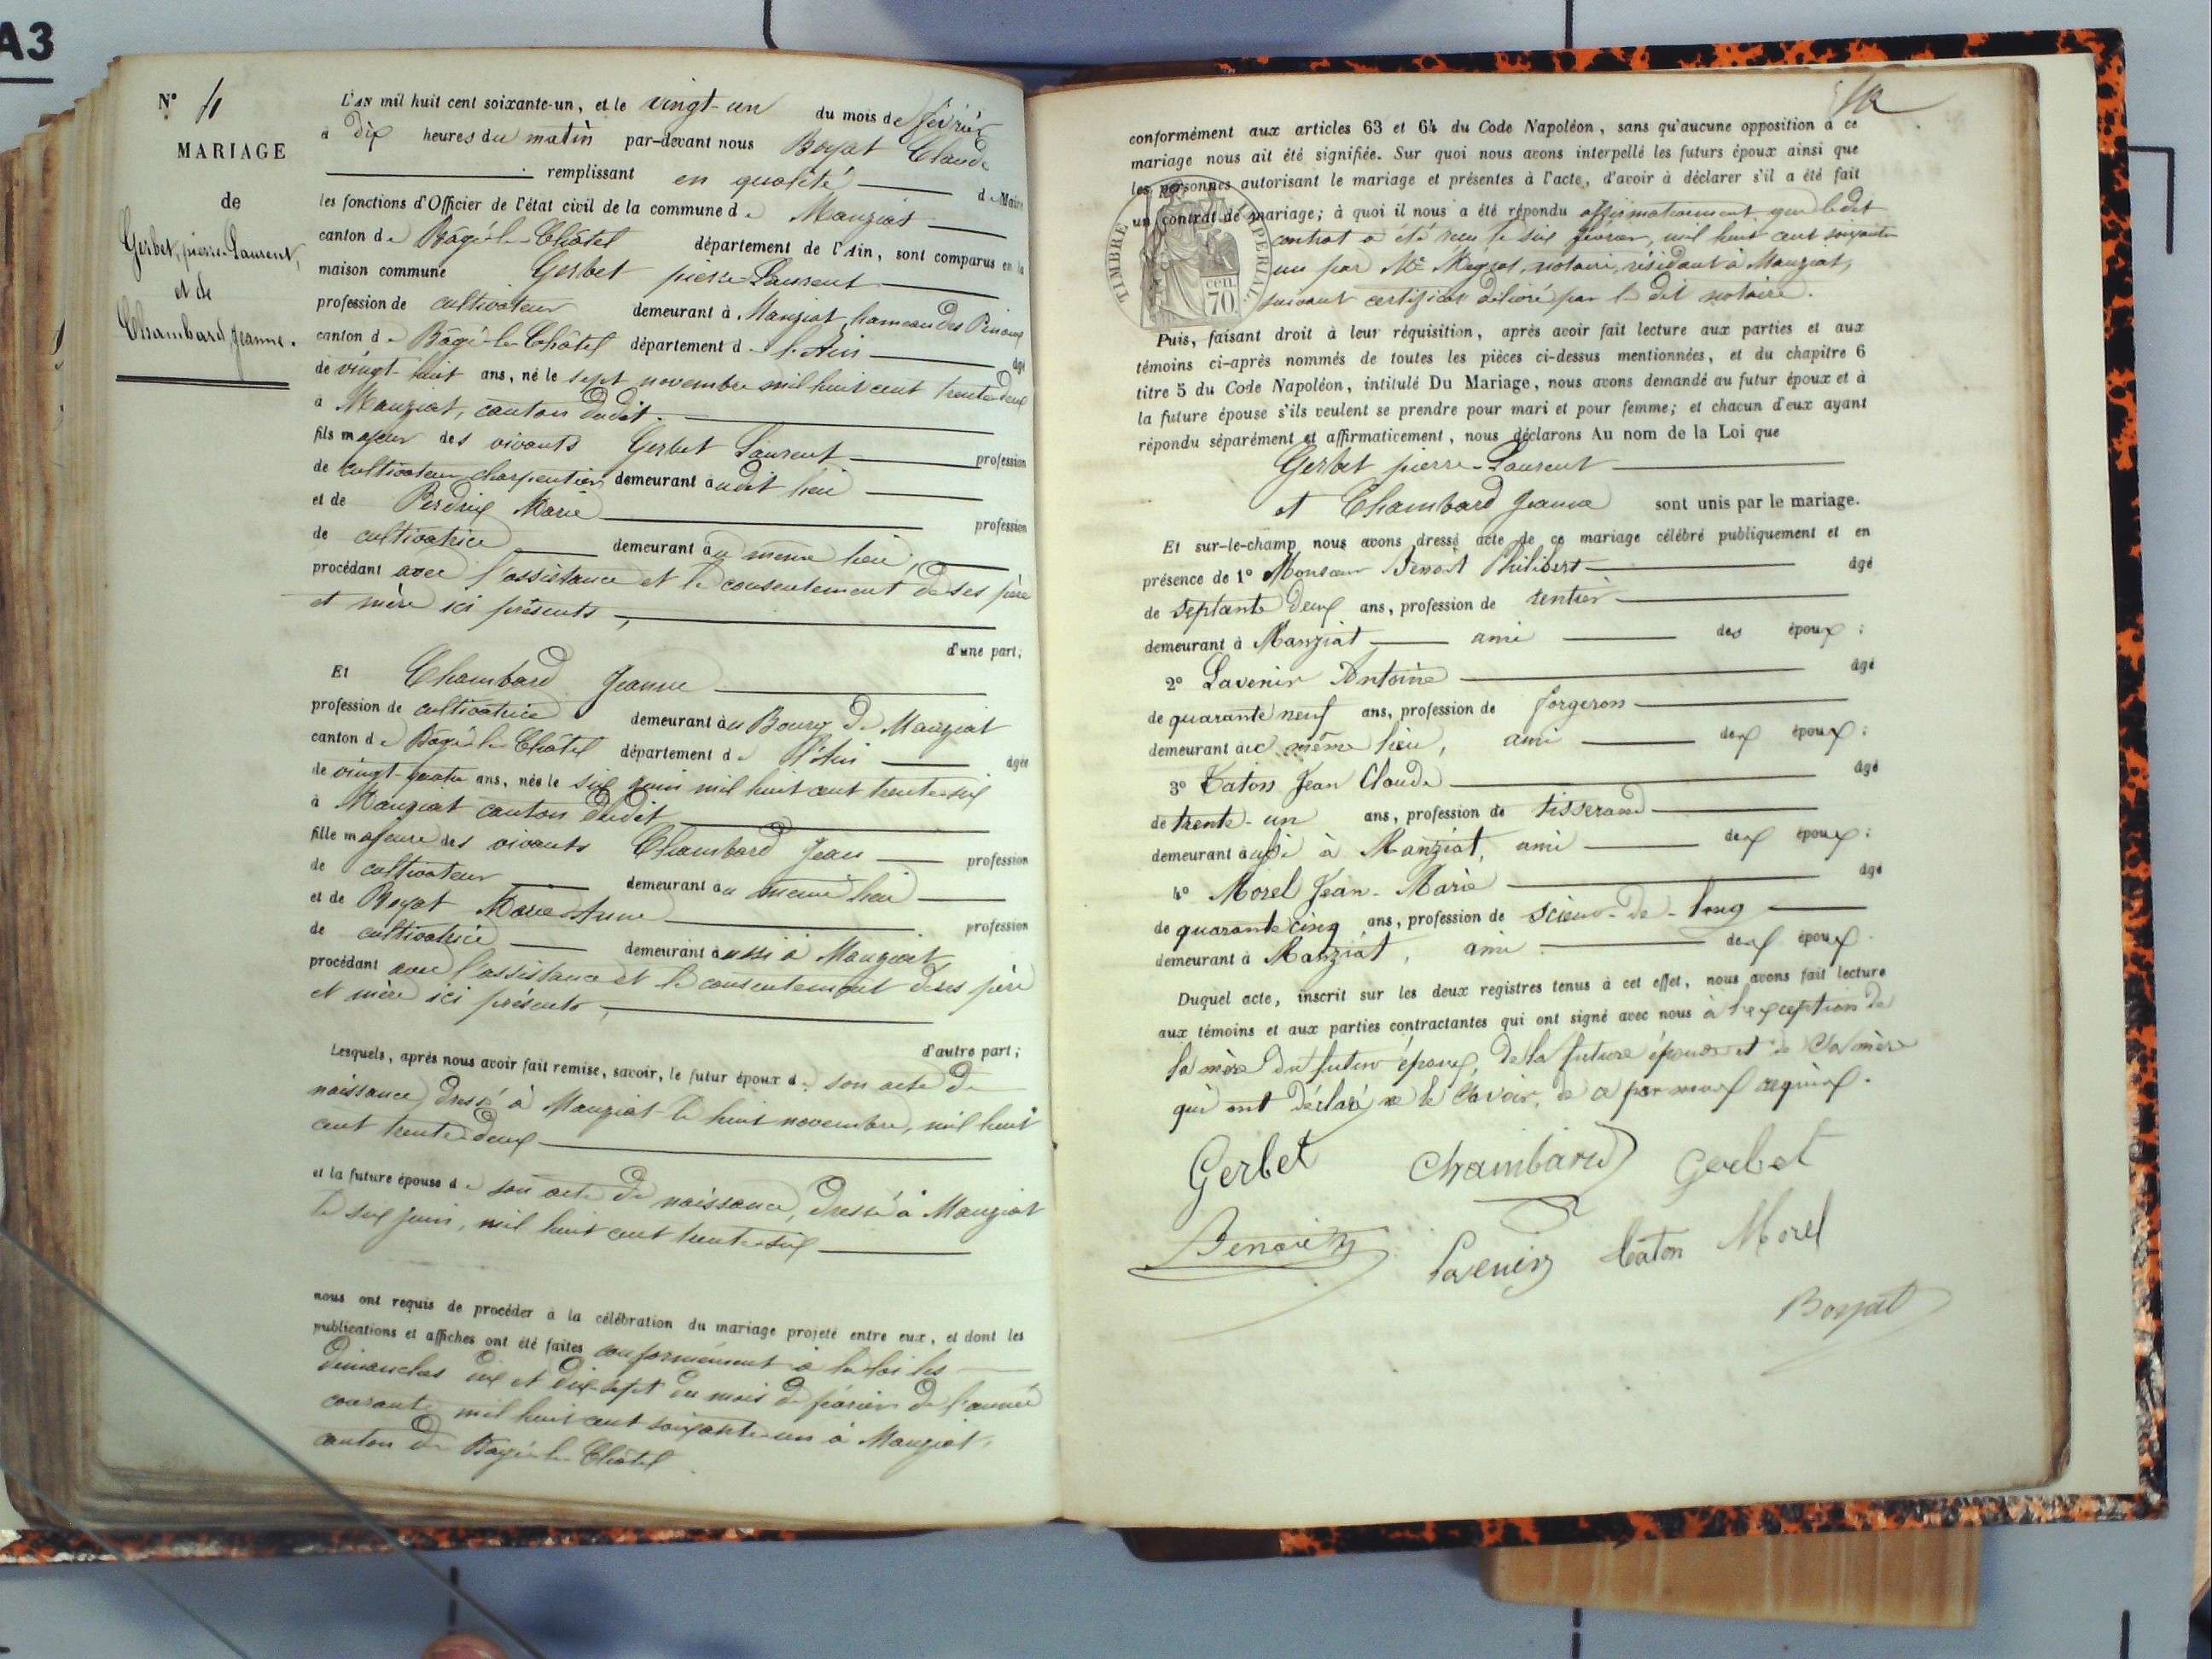 A3
N° 11
MARIAGE
de
Gerbet, pierre-Laurent,
et de
Chambard Jeanne.
L'AN mil huit cent soixante-un, et le vingt-un du mois de février
à dix heures du matin par-devant nous Boyat Claude
remplissant en qualité de Maire
les fonctions d'Officier de l'état civil de la commune de Manziat
canton de Bâgé-le-Châtel département de l'Ain, sont comparus en la
maison commune Gerbet pierre-Laurent
profession de cultivateur demeurant à Manziat, hameau des Pinoux
canton de Bâgé-le-Châtel département de l'Ain âgé
de vingt-huit ans, né le sept novembre mil huit cent trente-deux
à Manziat, canton dudit.
fils majeur des vivants Gerbet Laurent profession
de cultivateur charpentier demeurant audit lieu
et de Perdrix Marie profession
de cultivatrice demeurant au même lieu,
procédant avec l'assistance et le consentement de ses père
et mère ici présents,
d'une part;
Et Chambard Jeanne
profession de cultivatrice demeurant au Bourg de Manziat
canton de Bâgé-le-Châtel département de l'Ain âgée
de vingt-quatre ans, née le six juin mil huit cent trente-six
à Manziat canton dudit
fille majeure des vivants Chambard Jean profession
de cultivateur demeurant au même lieu
et de Boyat Marie-Anne profession
de cultivatrice demeurant aussi à Manziat
procédant avec l'assistance et le consentement de ses père
et mère ici présents,
d'autre part;
Lesquels, après nous avoir fait remise, savoir, le futur époux de son acte de
naissance dressé à Manziat le huit novembre, mil huit
cent trente-deux
et la future épouse de son acte de naissance, dressé à Manziat
le six juin, mil huit cent trente-six
nous ont requis de procéder à la célébration du mariage projeté entre eux, et dont les
publications et affiches ont été faites conformément à la loi les
dimanches dix et dix-sept du mois de février de l'année
courante mil huit cent soixante-un à Manziat,
canton de Bâgé-le-Châtel.
conformément aux articles 63 et 64 du Code Napoléon, sans qu'aucune opposition à ce
mariage nous ait été signifiée. Sur quoi nous avons interpellé les futurs époux ainsi que
les personnes autorisant le mariage et présentes à l'acte, d'avoir à déclarer s'il a été fait
un contrat de mariage; à quoi il nous a été répondu affirmativement que ledit
contrat a été reçu le six février, mil huit cent soixante
un par Me notaire, résidant à Manziat,
suivant certificat délivré par le dit notaire.
TIMBRE IMPERIAL
cen. 70
Puis, faisant droit à leur réquisition, après avoir fait lecture aux parties et aux
témoins ci-après nommés de toutes les pièces ci-dessus mentionnées, et du chapitre 6
titre 5 du Code Napoléon, intitulé Du Mariage, nous avons demandé au futur époux et à
la future épouse s'ils veulent se prendre pour mari et pour femme; et chacun d'eux ayant
répondu séparément et affirmativement, nous déclarons Au nom de la Loi que
Gerbet pierre-Laurent
et Chambard Jeanne sont unis par le mariage.
Et sur-le-champ nous avons dressé acte de ce mariage célébré publiquement et en
présence de 1° Monsieur Benoit Philibert âgé
de septante deux ans, profession de rentier
demeurant à Manziat ami des époux;
2° Lavenir Antoine âgé
de quarante neuf ans, profession de forgeron
demeurant au même lieu, ami des époux;
3° Caton Jean Claude âgé
de trente-un ans, profession de tisserand
demeurant aussi à Manziat, ami des époux;
4° Morel Jean-Marie âgé
de quarante cinq ans, profession de scieur-de-long
demeurant à Manziat, ami des époux.
Duquel acte, inscrit sur les deux registres tenus à cet effet, nous avons fait lecture
aux témoins et aux parties contractantes qui ont signé avec nous à l'exception de
la mère du futur époux, de la future épouse et de sa mère
qui ont déclaré ne le savoir, de ce par nous requises.
Gerbet Chambard Gerbet
Benoit Lavenir Caton Morel
Boyat